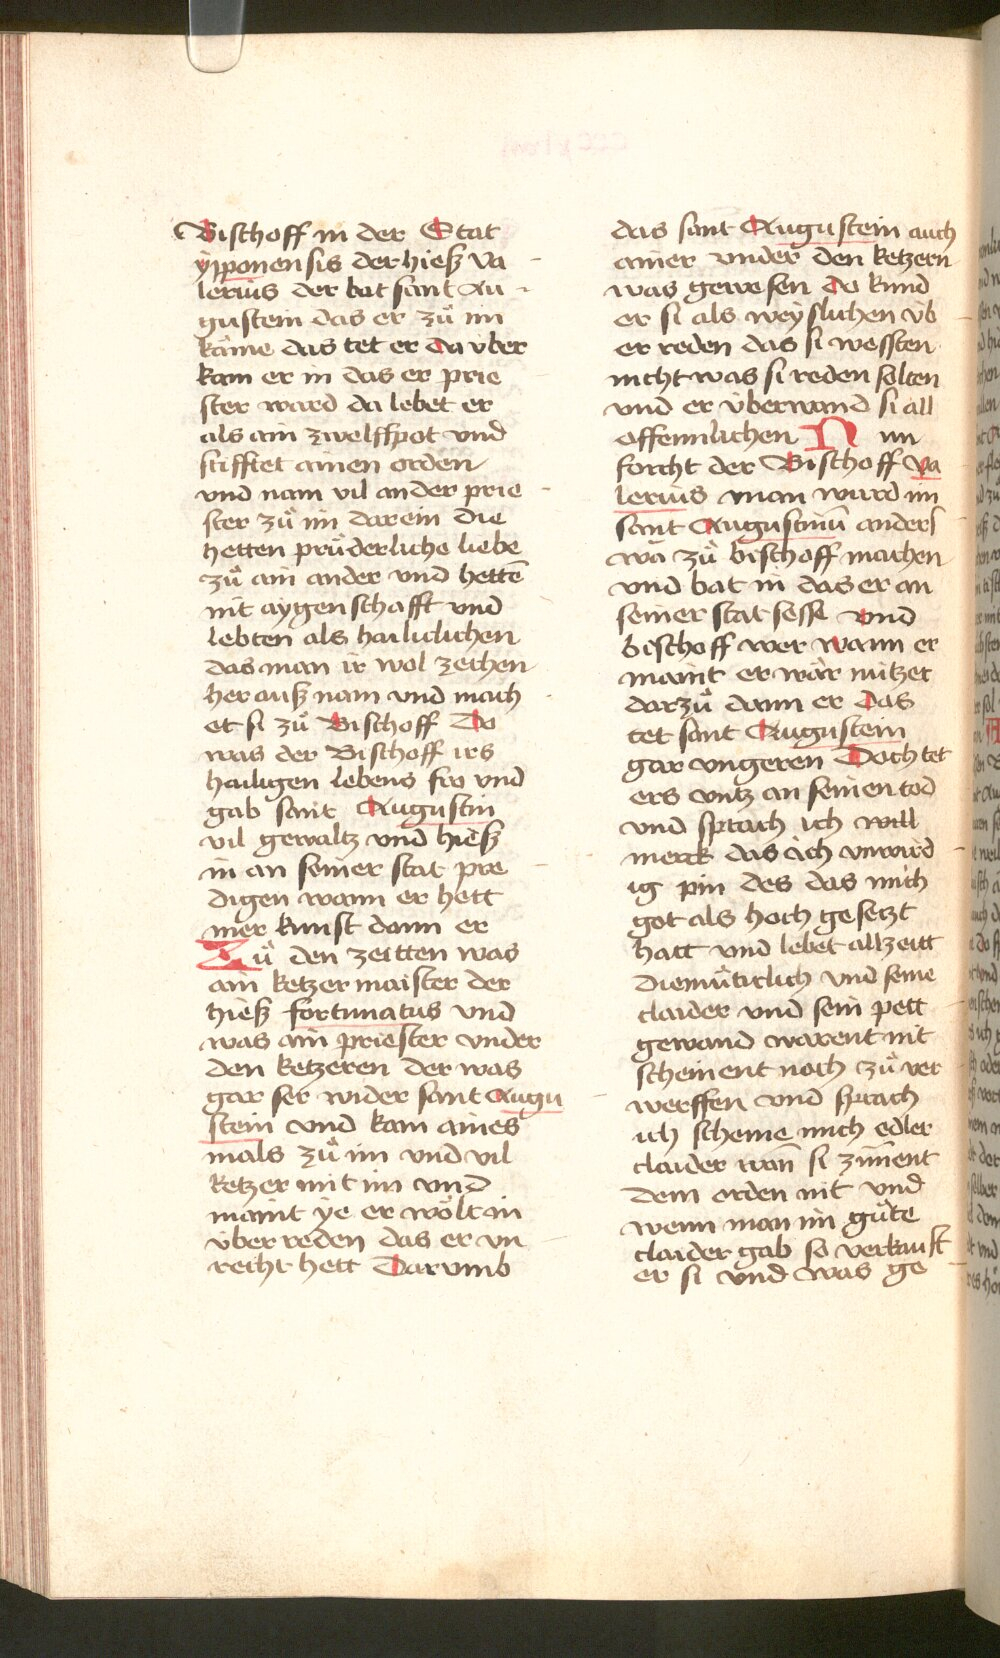 Bischoff in der Stat
ypponensis der hieß Va
lerius der bat sant Au
gustein das er zuͦ im
käme das tet er Da über
kam er in das er prie
ster ward da lebet er
als ain zwelffpot vnd
stifftet ainen orden
vnd nam vil ander prie
ster zuͦ im darein die
hetten pruͤderliche liebe
zuͦ ain ander vnd hettē
nit aygenschafft vnd
lebten als hailiclichen
das man ir wol zechen
her auß nam vnd mach
et si zuͦ Bischoff Do
was der Bischoff irs
hailigen lebens fro vnd
gab sant Augustin
vil gewaltz vnd hieß
in an seiner stat pre
digen wann er hett
mer kunst dann er
Zuͦ den zeitten was
ain ketzer maister der
hieß fortunatus vnd
was ain priester vnder
den ketzeren der was
gar ser wider sant Augu
stein vnd kam aines
mals zuͦ im vnd vil
ketzer mit im vnd
maint ye er wölt in
über reden das er vn
recht hett Darumb
das sant Augustein auch
ainer vnder den ketzern
was gewesen do kund
er si als weyslichen üb
er reden das si wessten
nicht was si reden solten
vnd er überwand si all
offennlichen Nun
forcht der Bischoff Va
lerius man wurd im
sant Augustinū anders
wa zuͦ bischoff machen
vnd bat in das er an
seiner stat sesse vnd
bischoff wer wann er
maint er wär nützer
darzuͦ dann er Das
tet sant Augustein
gar vngeren Doch tet
ers vntz an seinen tod
vnd sprach ich will
merck das ich vnwird
ig pin des das mich
got als hoch gesetzt
hatt vnd lebet allzeitt
diemuͤticlich vnd seine
claider vnd sein pett
gewand warent nit
scheinent noch zuͦ ver
werffen vnd sprach
ich scheme mich edler
claider wañ si zim̄ent
dem orden nit vnd
wenn man im guͤte
claider gab so verkauft
er si vnd was ge